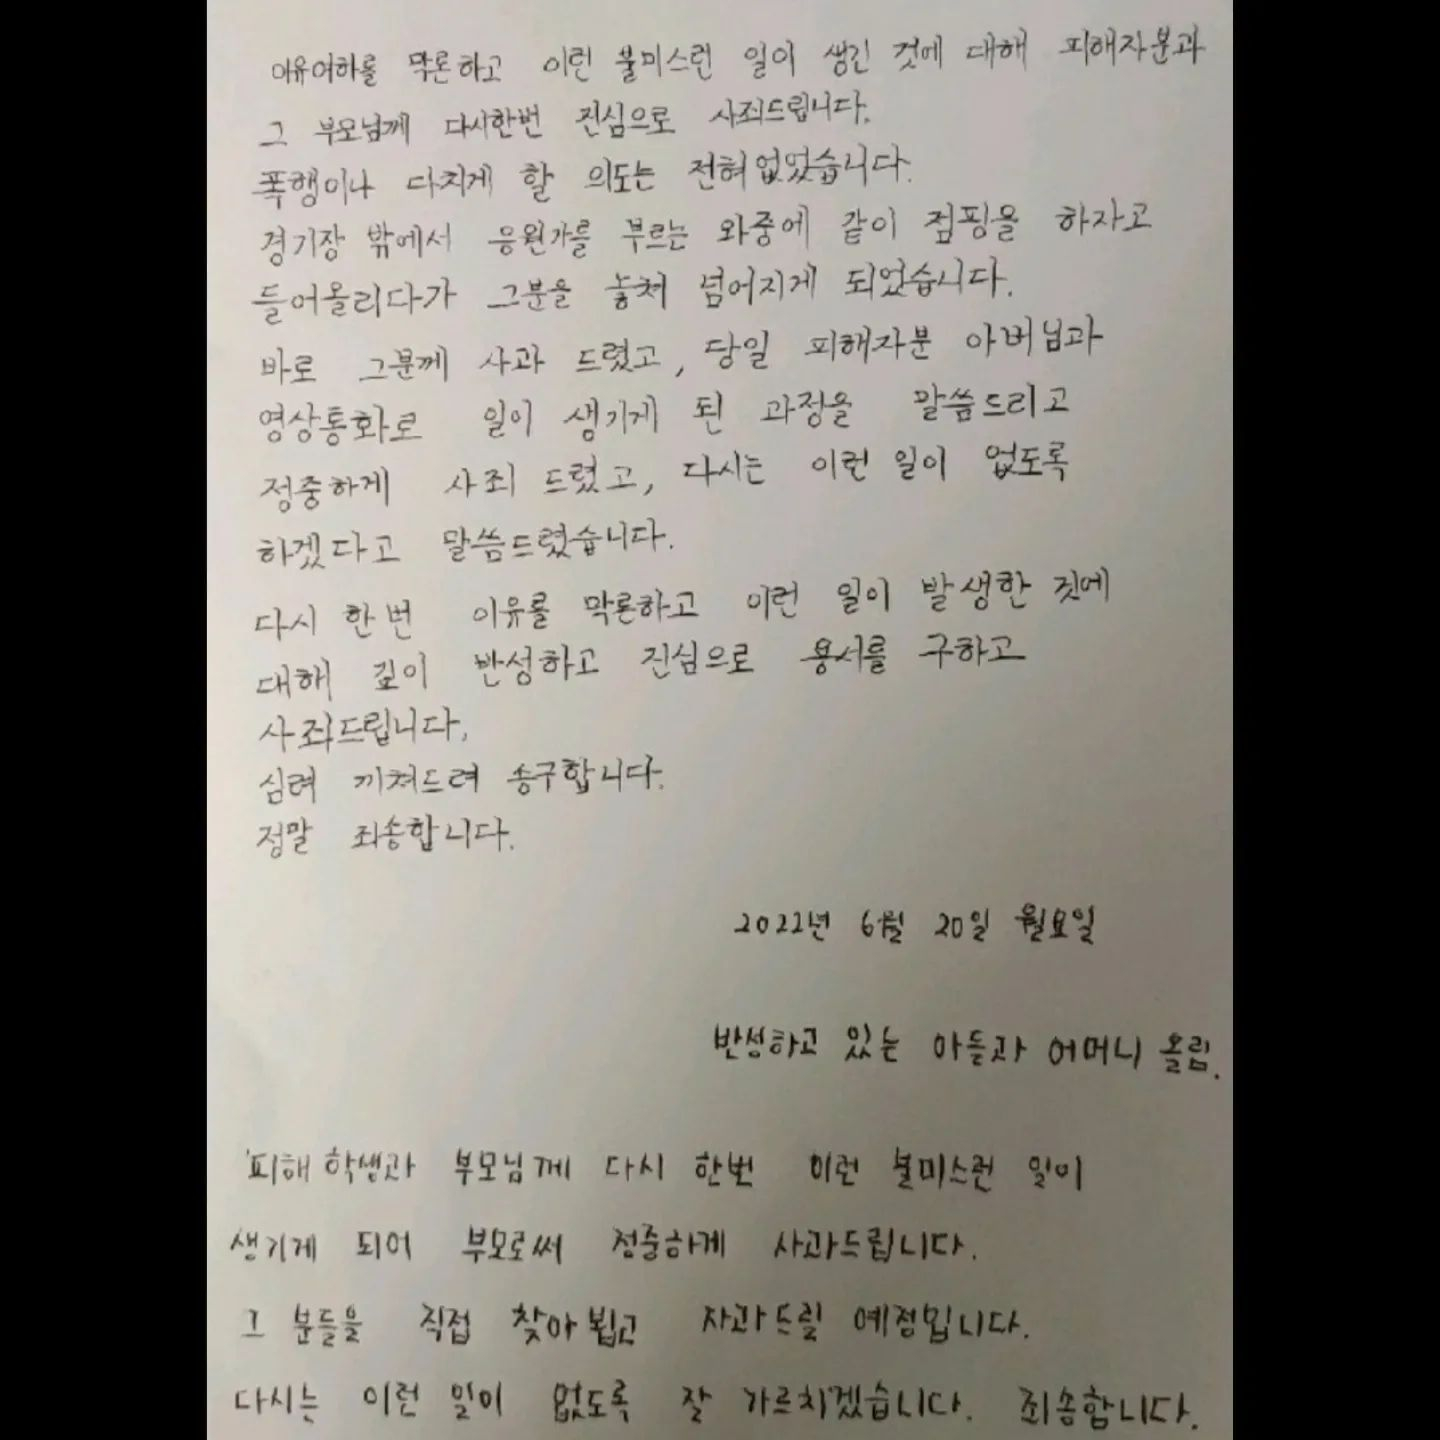 이유여하를 막론하고 이런 불미스런 일이 생긴 것에 대해 피해자분과
그 부모님께 다시한번 진심으로 사죄드립니다.
폭행이나 다치게 할 의도는 전혀없었습니다.
경기장 밖에서 응원가를 부르는 와중에 같이 점핑을 하자고
들어올리다가 그분을 놓쳐 넘어지게 되었습니다.
바로 그분께 사과 드렸고, 당일 피해자분 아버님과
영상통화로 일이 생기게 된 과정을 말씀드리고
정중하게 사죄 드렸고, 다시는 이런 일이 없도록
하겠다고 말씀드렸습니다.
다시 한번 이유를 막론하고 이런 일이 발생한 것에
대해 깊이 반성하고 진심으로 용서를 구하고
사죄드립니다.
심려 끼쳐드려 송구합니다.
정말 죄송합니다.
2022년 6월 20일 월요일
반성하고 있는 아들과 어머니 올림.
피해학생과 부모님께 다시 한번 이런 불미스런 일이
생기게 되어 부모로써 정중하게 사과드립니다.
그 분들을 직접 찾아뵙고 사과드릴 예정입니다.
다시는 이런 일이 없도록 잘 가르치겠습니다. 죄송합니다.